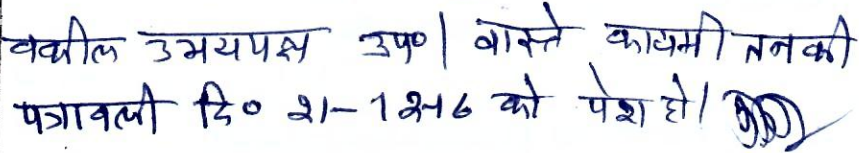 वकील उभयपक्ष उप०। वास्ते कायमी तनकी
पत्रावली दि० 21-12-16 को पेश हो।